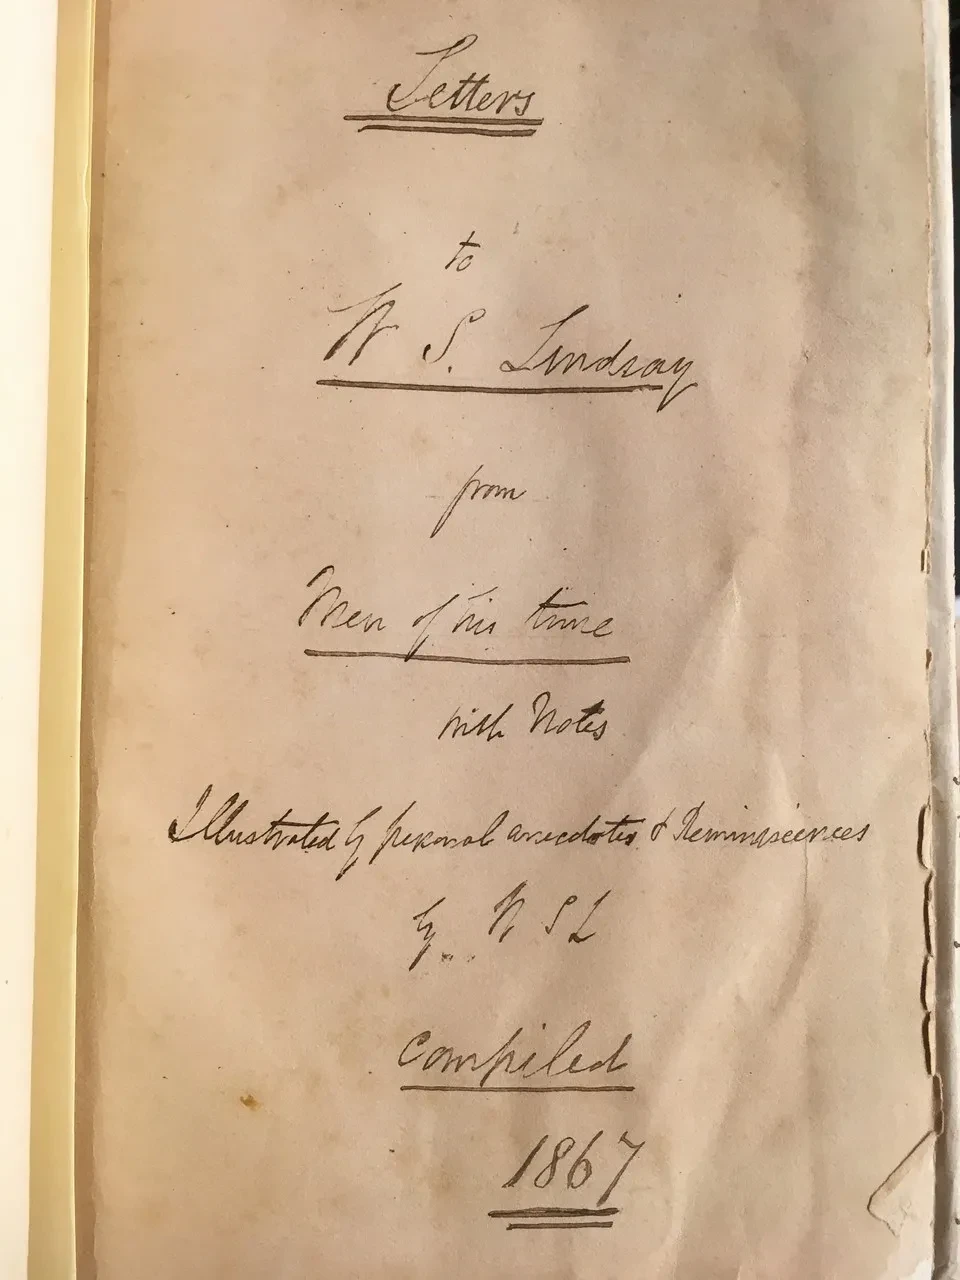 Letters
to
W S. Lindsay
from
Men of his time
with Notes
Illustrated by personal anecdotes & Reminiscences
by W S L
Compiled
1867